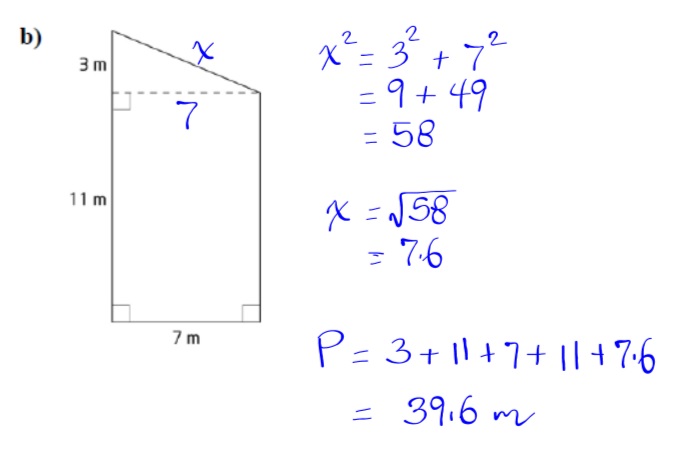 b)
3 m
x
7
11 m
7 m
x² = 3² + 7²
= 9 + 49
= 58
x = √58
= 7.6
P = 3 + 11 + 7 + 11 + 7.6
= 39.6 m